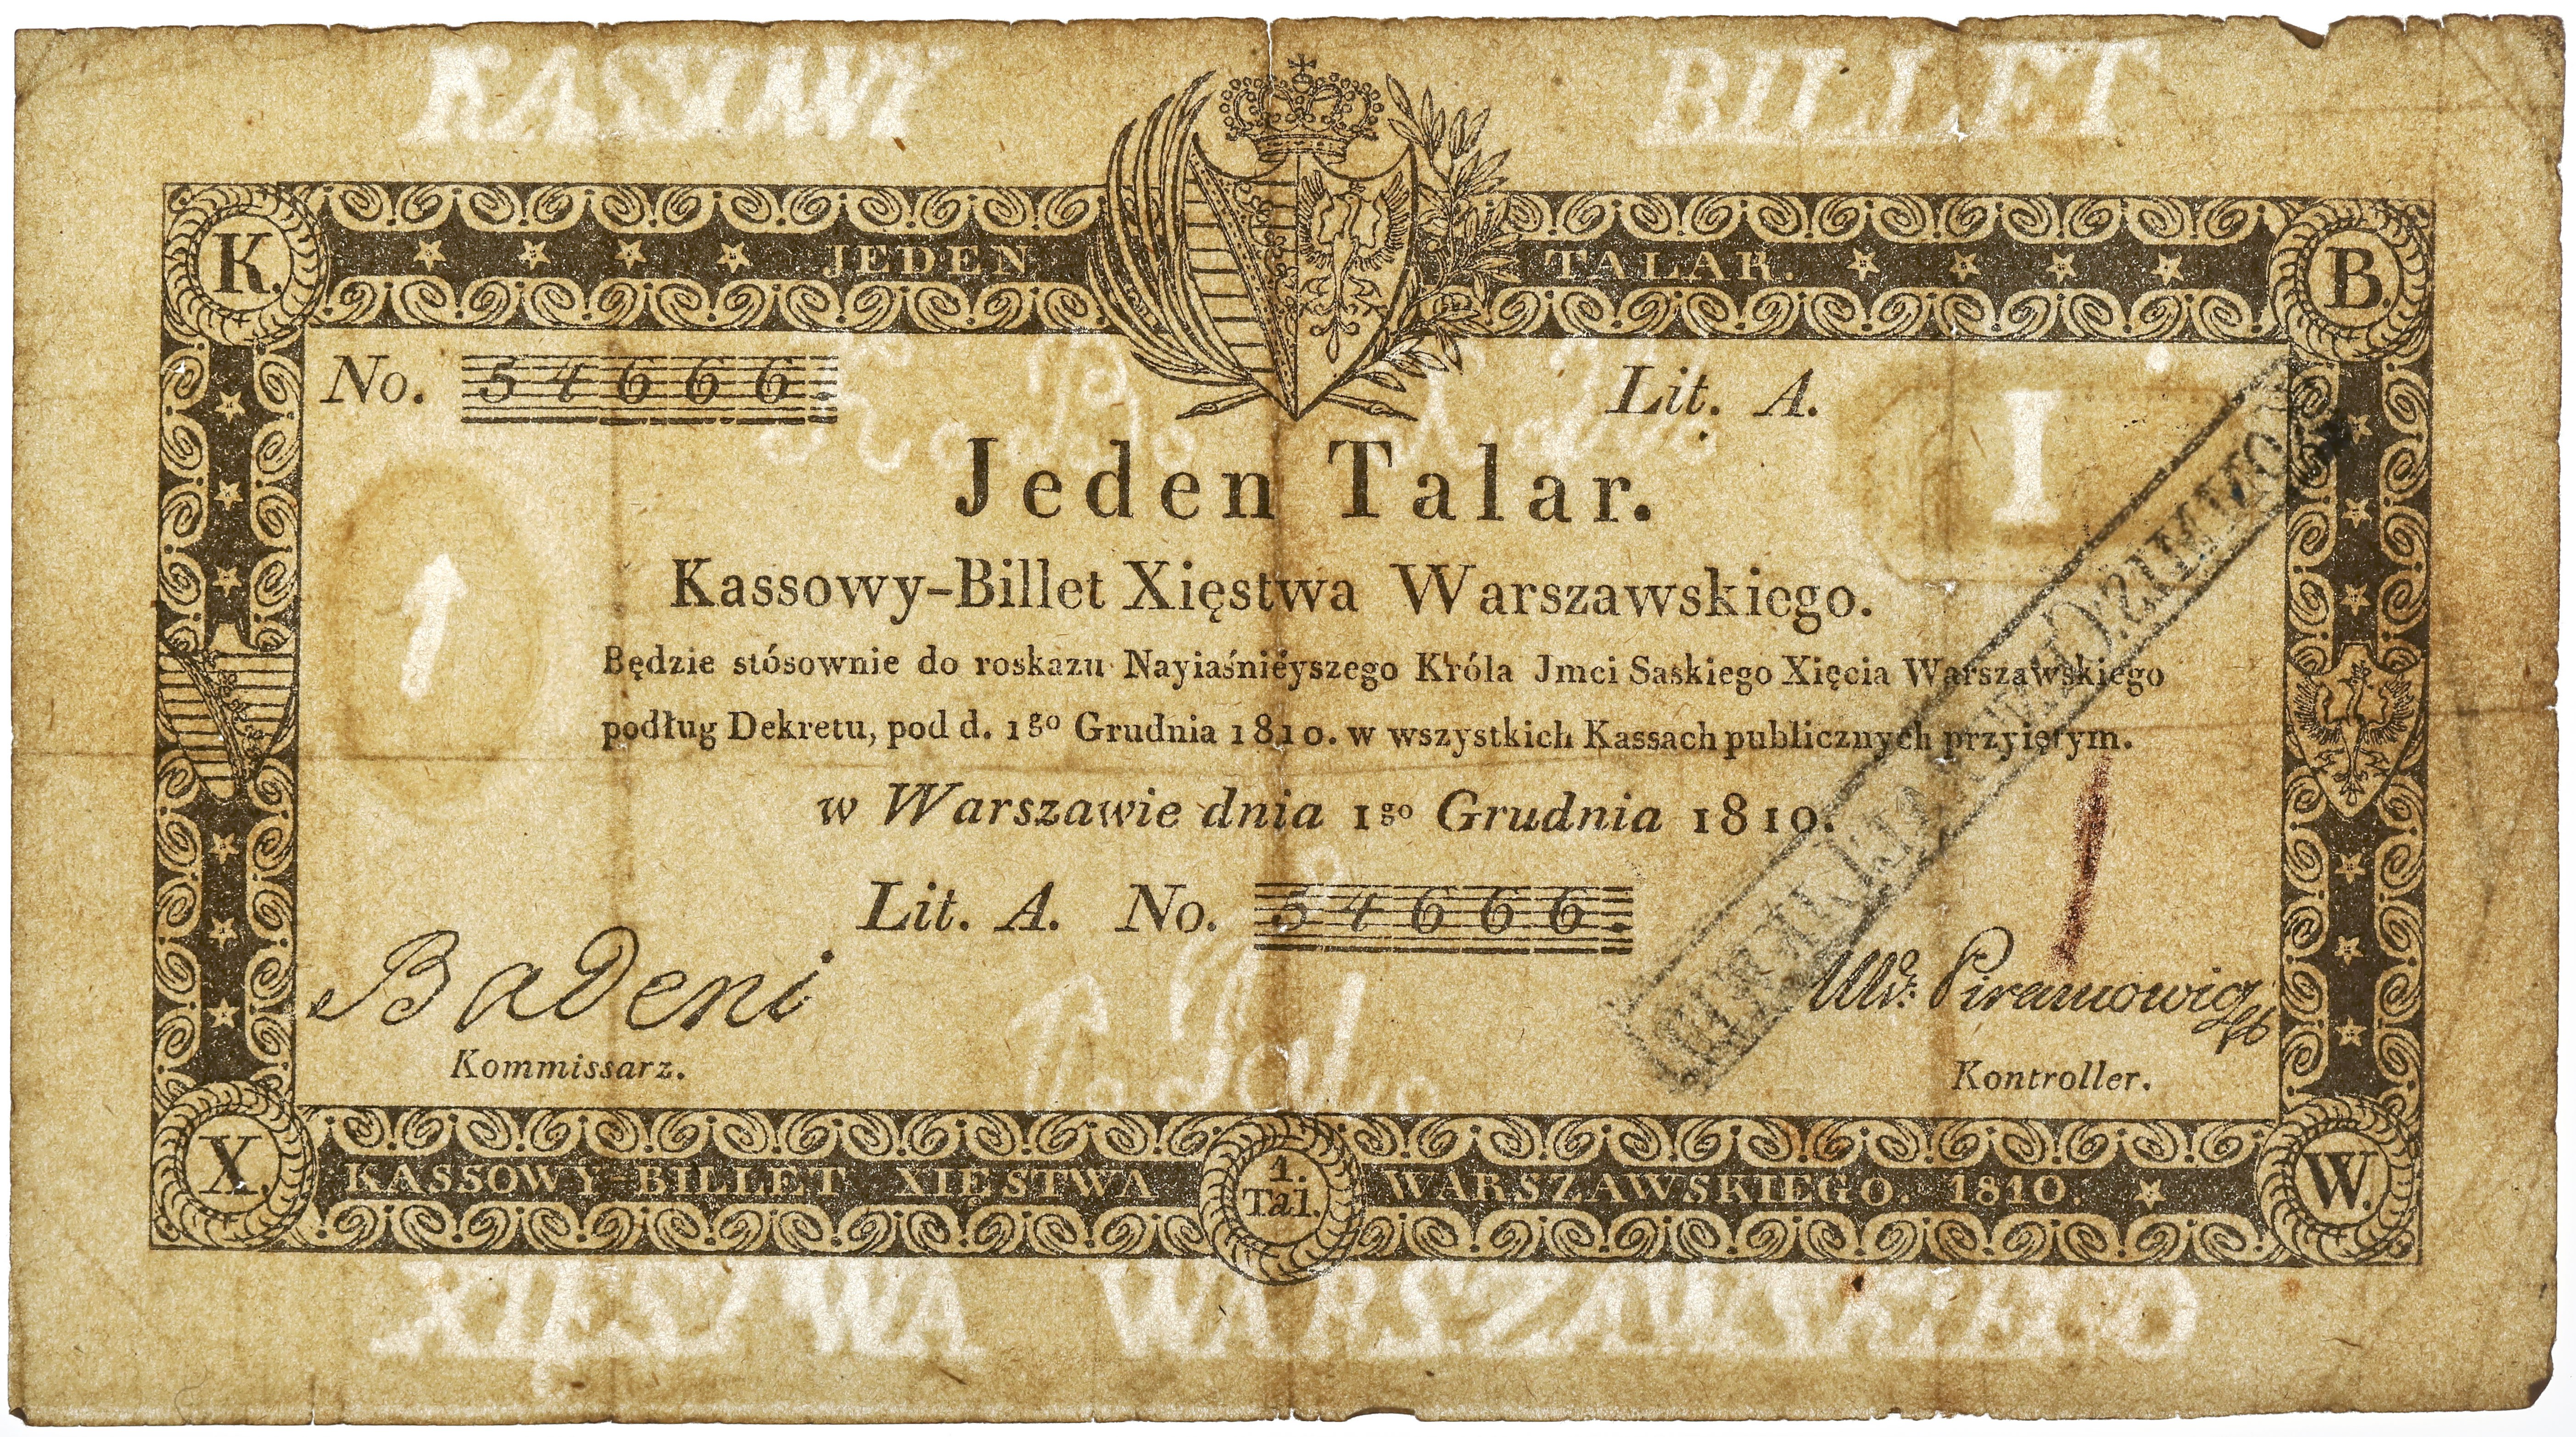 KASSOWY BILLET
K. JEDEN TALAR. B.
No. 54666. Lit. A.
Jeden Talar.
1 I
Kassowy-Billet Xięstwa Warszawskiego.
Będzie stósownie do roskazu Nayiaśniéyszego Króla Jmci Saskiego Xięcia Warszawskiego
podług Dekretu, pod d. 1go Grudnia 1810. w wszystkich Kassach publicznych przyiętym.
w Warszawie dnia 1go Grudnia 1810.
Lit. A. No. 54666.
Badeni
Kommissarz. Kontroller.
X. KASSOWY-BILLET XIĘSTWA 1. Tal. WARSZAWSKIEGO. 1810. W.
XIĘSTWA WARSZAWSKIEGO